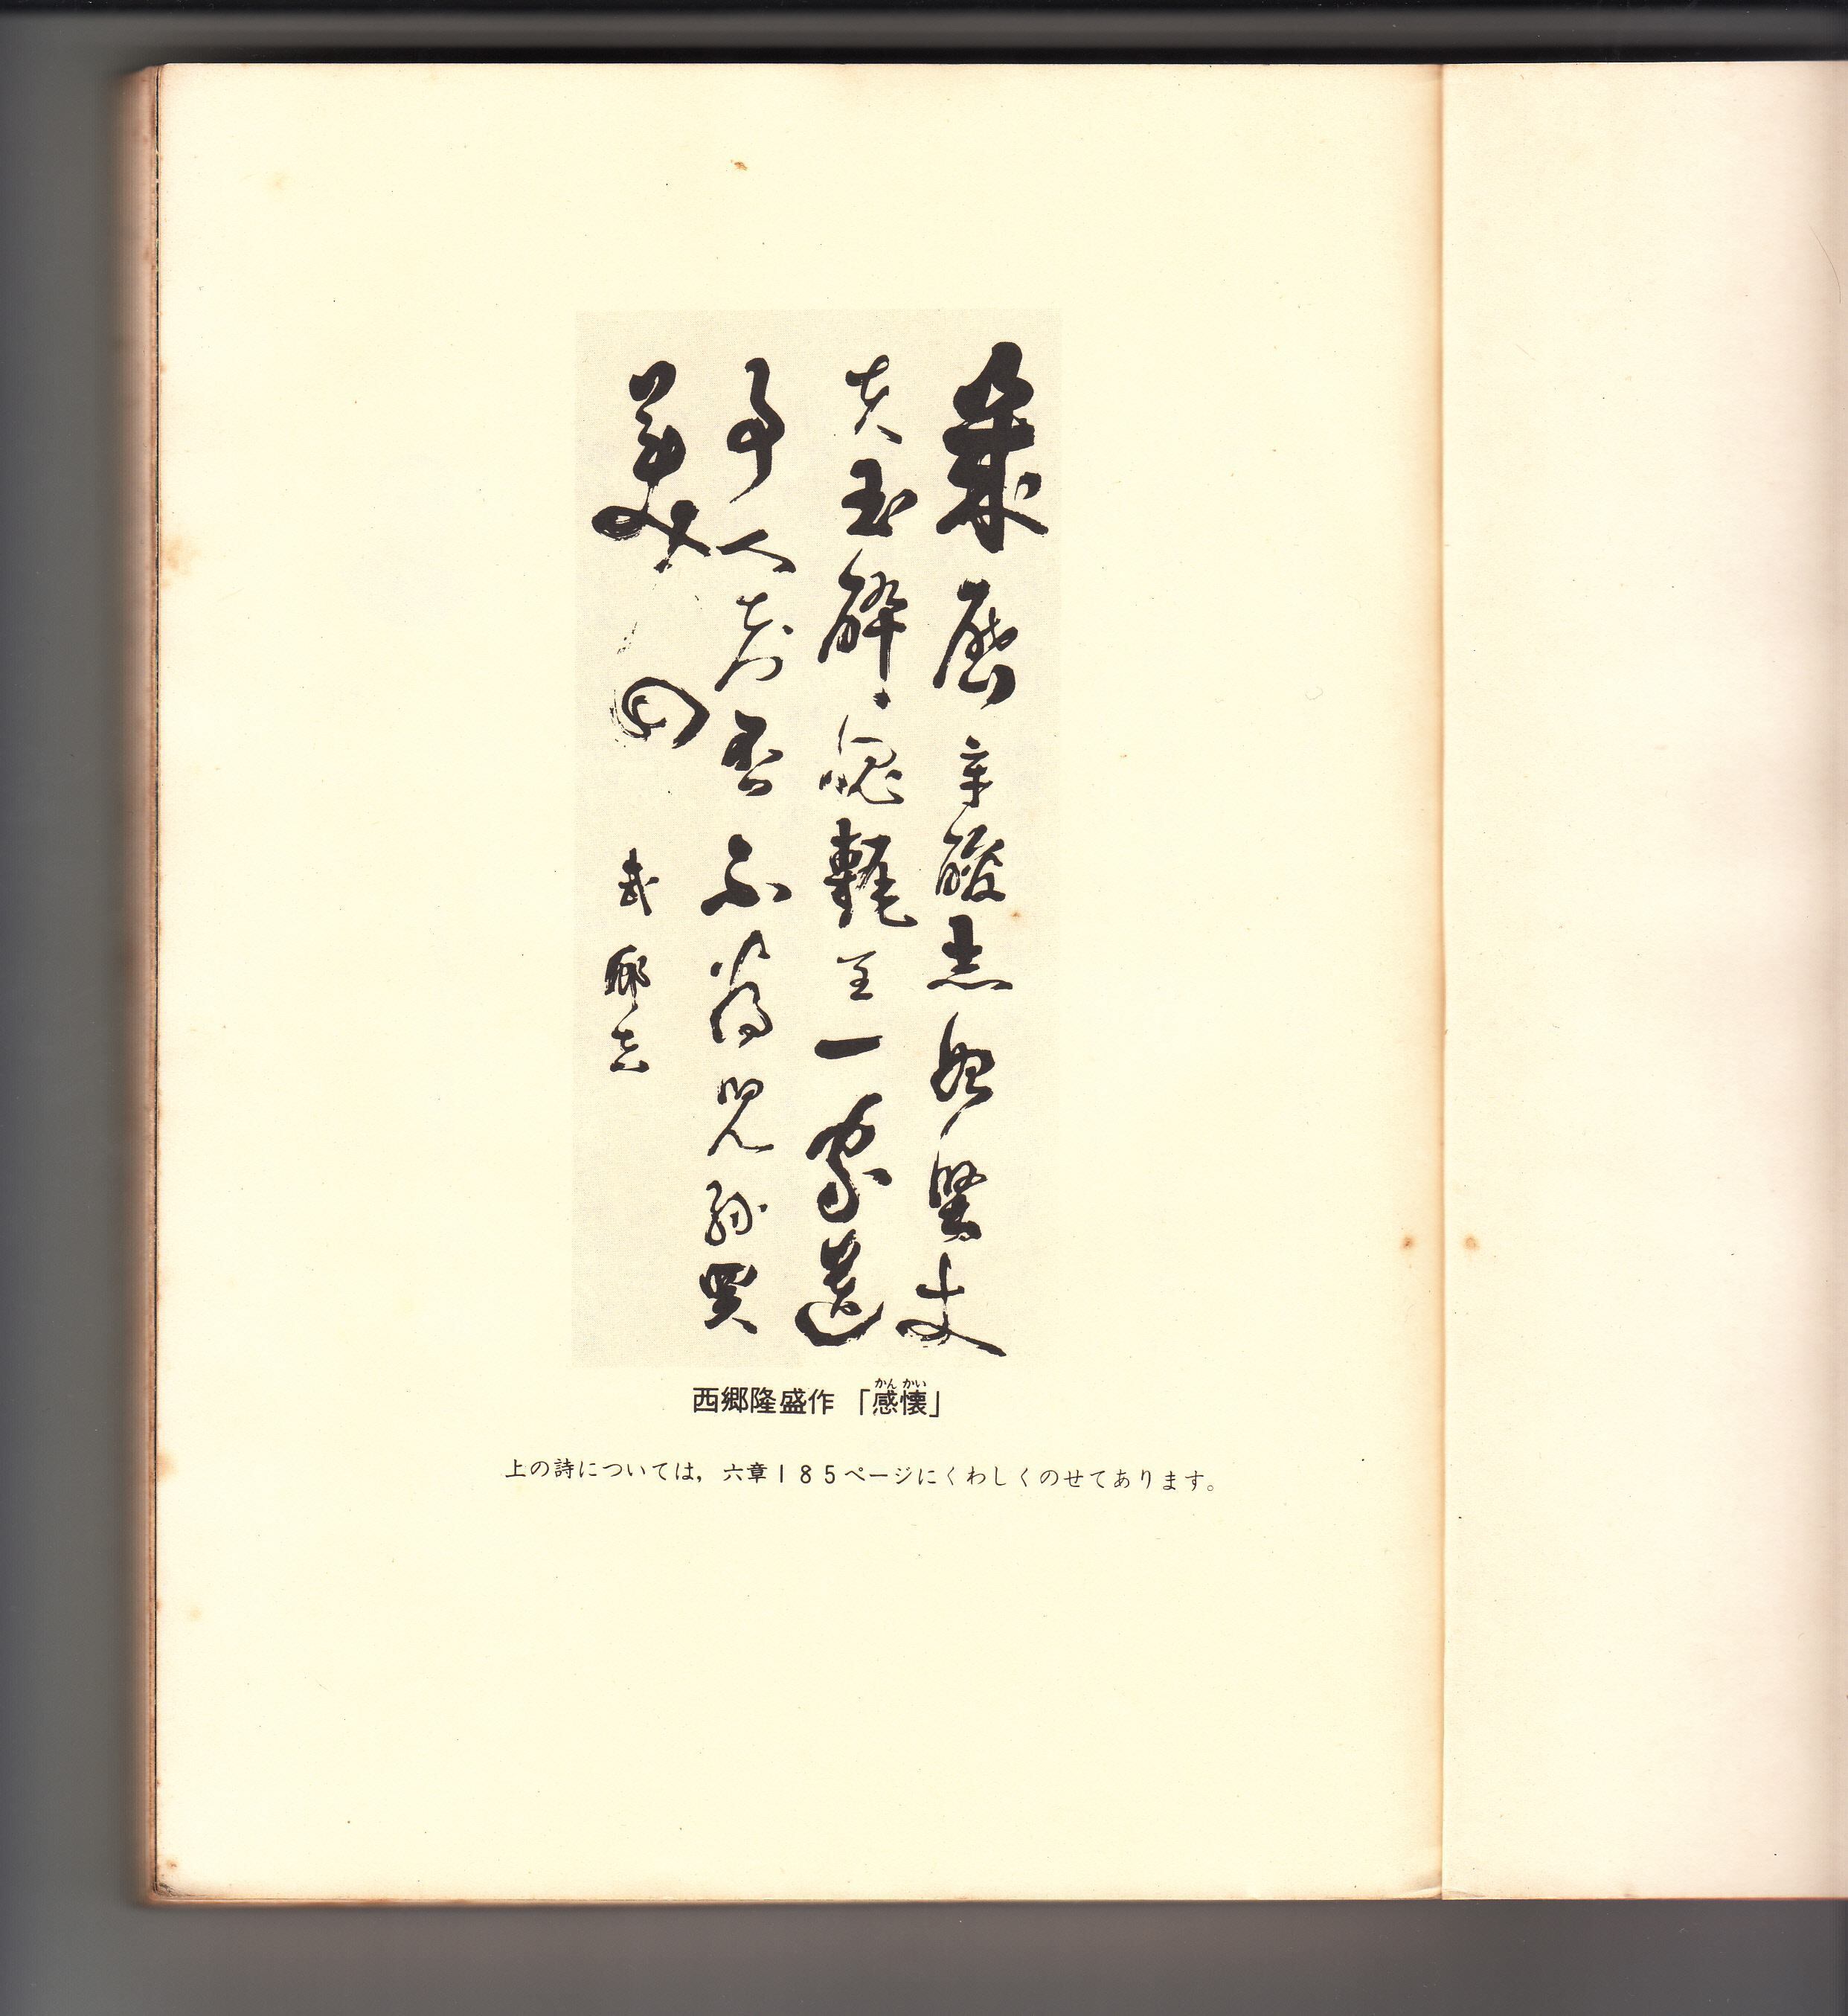 幾歷辛酸志始堅丈
夫玉碎愧甎全一家遺
事人知否不為兒孫買
美田
武邨吉
かんかい
西郷隆盛作「感懐」
上の詩については，六章185ページにくわしくのせてあります。